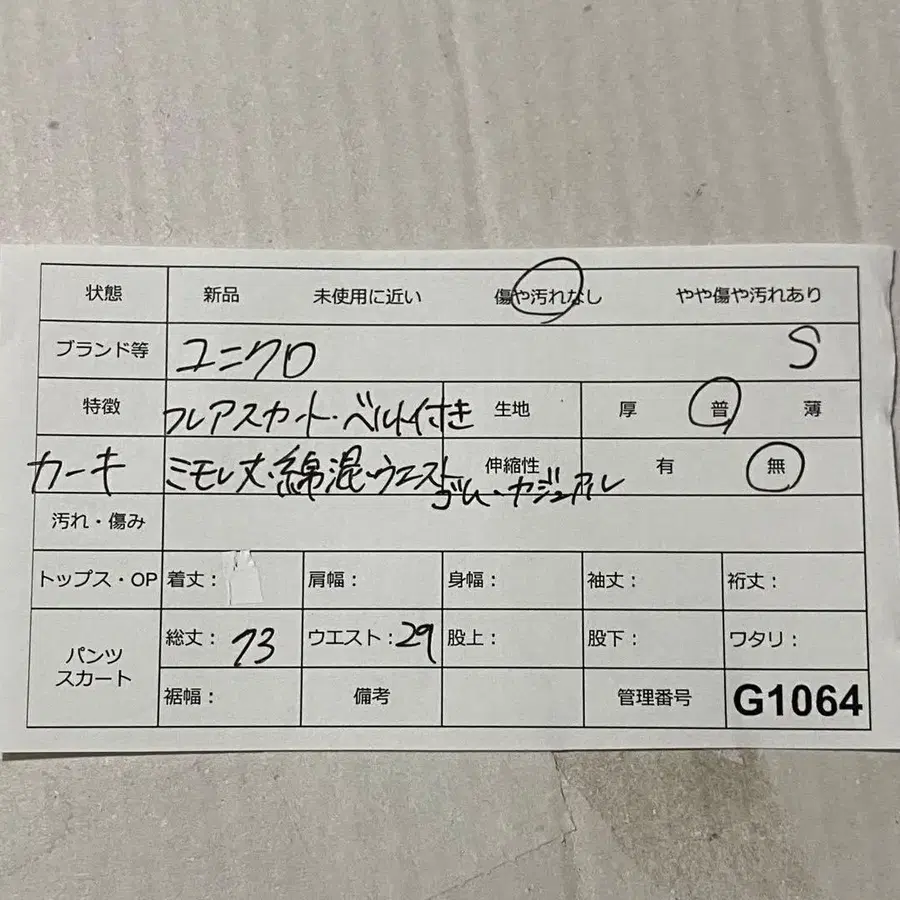 状態 新品 未使用に近い 傷や汚れなし やや傷や汚れあり
ブランド等 ユニクロ S
特徴 フレアスカート・ベルト付き 生地 厚 普 薄
カーキ ミモレ丈・綿混・ウエストゴム・カジュアル 伸縮性 有 無
汚れ・傷み
トップス・OP 着丈： 肩幅： 身幅： 袖丈： 裄丈：
パンツ スカート 総丈：73 ウエスト：29 股上： 股下： ワタリ：
裾幅： 備考 管理番号 G1064